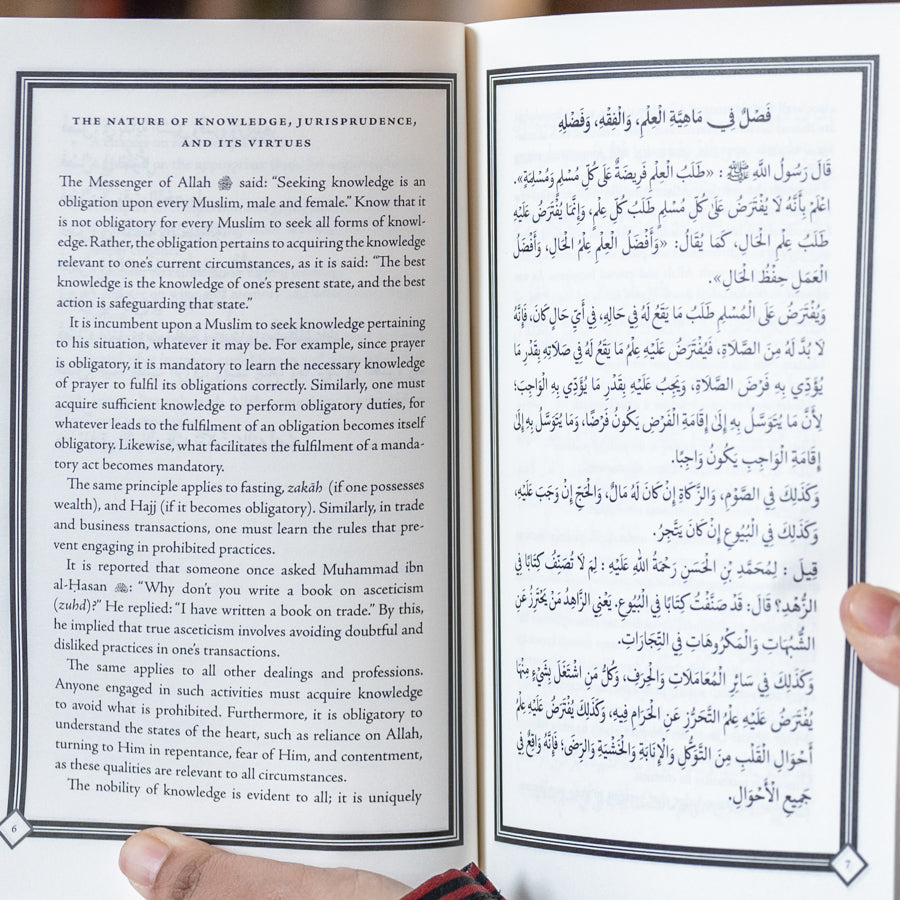 THE NATURE OF KNOWLEDGE, JURISPRUDENCE,
AND ITS VIRTUES
The Messenger of Allah ﷺ said: “Seeking knowledge is an
obligation upon every Muslim, male and female.” Know that it
is not obligatory for every Muslim to seek all forms of knowl-
edge. Rather, the obligation pertains to acquiring the knowledge
relevant to one’s current circumstances, as it is said: “The best
knowledge is the knowledge of one’s present state, and the best
action is safeguarding that state.”
It is incumbent upon a Muslim to seek knowledge pertaining
to his situation, whatever it may be. For example, since prayer
is obligatory, it is mandatory to learn the necessary knowledge
of prayer to fulfil its obligations correctly. Similarly, one must
acquire sufficient knowledge to perform obligatory duties, for
whatever leads to the fulfilment of an obligation becomes itself
obligatory. Likewise, what facilitates the fulfilment of a manda-
tory act becomes mandatory.
The same principle applies to fasting, zakāh (if one possesses
wealth), and Hajj (if it becomes obligatory). Similarly, in trade
and business transactions, one must learn the rules that pre-
vent engaging in prohibited practices.
It is reported that someone once asked Muhammad ibn
al-Ḥasan : “Why don’t you write a book on asceticism
(zuhd)?” He replied: “I have written a book on trade.” By this,
he implied that true asceticism involves avoiding doubtful and
disliked practices in one’s transactions.
The same applies to all other dealings and professions.
Anyone engaged in such activities must acquire knowledge
to avoid what is prohibited. Furthermore, it is obligatory to
understand the states of the heart, such as reliance on Allah,
turning to Him in repentance, fear of Him, and contentment,
as these qualities are relevant to all circumstances.
The nobility of knowledge is evident to all; it is uniquely
6
فَصْلٌ فِي مَاهِيَّةِ الْعِلْمِ، وَالْفِقْهِ، وَفَضْلِهِ
قَالَ رَسُولُ اللَّهِ ﷺ : «طَلَبُ الْعِلْمِ فَرِيضَةٌ عَلَى كُلِّ مُسْلِمٍ وَمُسْلِمَةٍ».
اعْلَمْ بِأَنَّهُ لَا يُفْتَرَضُ عَلَى كُلِّ مُسْلِمٍ طَلَبُ كُلِّ عِلْمٍ، وَإِنَّمَا يُفْتَرَضُ عَلَيْهِ
طَلَبُ عِلْمِ الْحَالِ، كَمَا يُقَالُ: «وَأَفْضَلُ الْعِلْمِ عِلْمُ الْحَالِ، وَأَفْضَلُ
الْعَمَلِ حِفْظُ الْحَالِ».
وَيُفْتَرَضُ عَلَى الْمُسْلِمِ طَلَبُ مَا يَقَعُ لَهُ فِي حَالِهِ، فِي أَيِّ حَالٍ كَانَ، فَإِنَّهُ
لَا بُدَّ لَهُ مِنَ الصَّلَاةِ، فَيُفْتَرَضُ عَلَيْهِ عِلْمُ مَا يَقَعُ لَهُ فِي صَلَاتِهِ بِقَدْرِ مَا
يُؤَدِّي بِهِ فَرْضَ الصَّلَاةِ، وَيَجِبُ عَلَيْهِ بِقَدْرِ مَا يُؤَدِّي بِهِ الْوَاجِبَ؛
لِأَنَّ مَا يُتَوَسَّلُ بِهِ إِلَى إِقَامَةِ الْفَرْضِ يَكُونُ فَرْضًا، وَمَا يُتَوَسَّلُ بِهِ إِلَى
إِقَامَةِ الْوَاجِبِ يَكُونُ وَاجِبًا.
وَكَذَلِكَ فِي الصَّوْمِ، وَالزَّكَاةِ إِنْ كَانَ لَهُ مَالٌ، وَالْحَجِّ إِنْ وَجَبَ عَلَيْهِ،
وَكَذَلِكَ فِي الْبُيُوعِ إِنْ كَانَ يَتَّجِرُ.
قِيلَ : لِمُحَمَّدِ بْنِ الْحَسَنِ رَحْمَةُ اللهِ عَلَيْهِ : لِمَ لَا تُصَنِّفُ كِتَابًا فِي
الزُّهْدِ؟ قَالَ: قَدْ صَنَّفْتُ كِتَابًا فِي الْبُيُوعِ. يَعْنِي الزَّاهِدُ مَنْ يَحْتَرِزُ عَنِ
الشُّبُهَاتِ وَالْمَكْرُوهَاتِ فِي التِّجَارَاتِ.
وَكَذَلِكَ فِي سَائِرِ الْمُعَامَلَاتِ وَالْحِرَفِ، وَكُلُّ مَنِ اشْتَغَلَ بِشَيْءٍ مِنْهَا
يُفْتَرَضُ عَلَيْهِ عِلْمُ التَّحَرُّزِ عَنِ الْحَرَامِ فِيهِ، وَكَذَلِكَ يُفْتَرَضُ عَلَيْهِ عِلْمُ
أَحْوَالِ الْقَلْبِ مِنَ التَّوَكُّلِ وَالْإِنَابَةِ وَالْخَشْيَةِ وَالرِّضَى؛ فَإِنَّهُ وَاقِعٌ فِي
جَمِيعِ الْأَحْوَالِ.
7